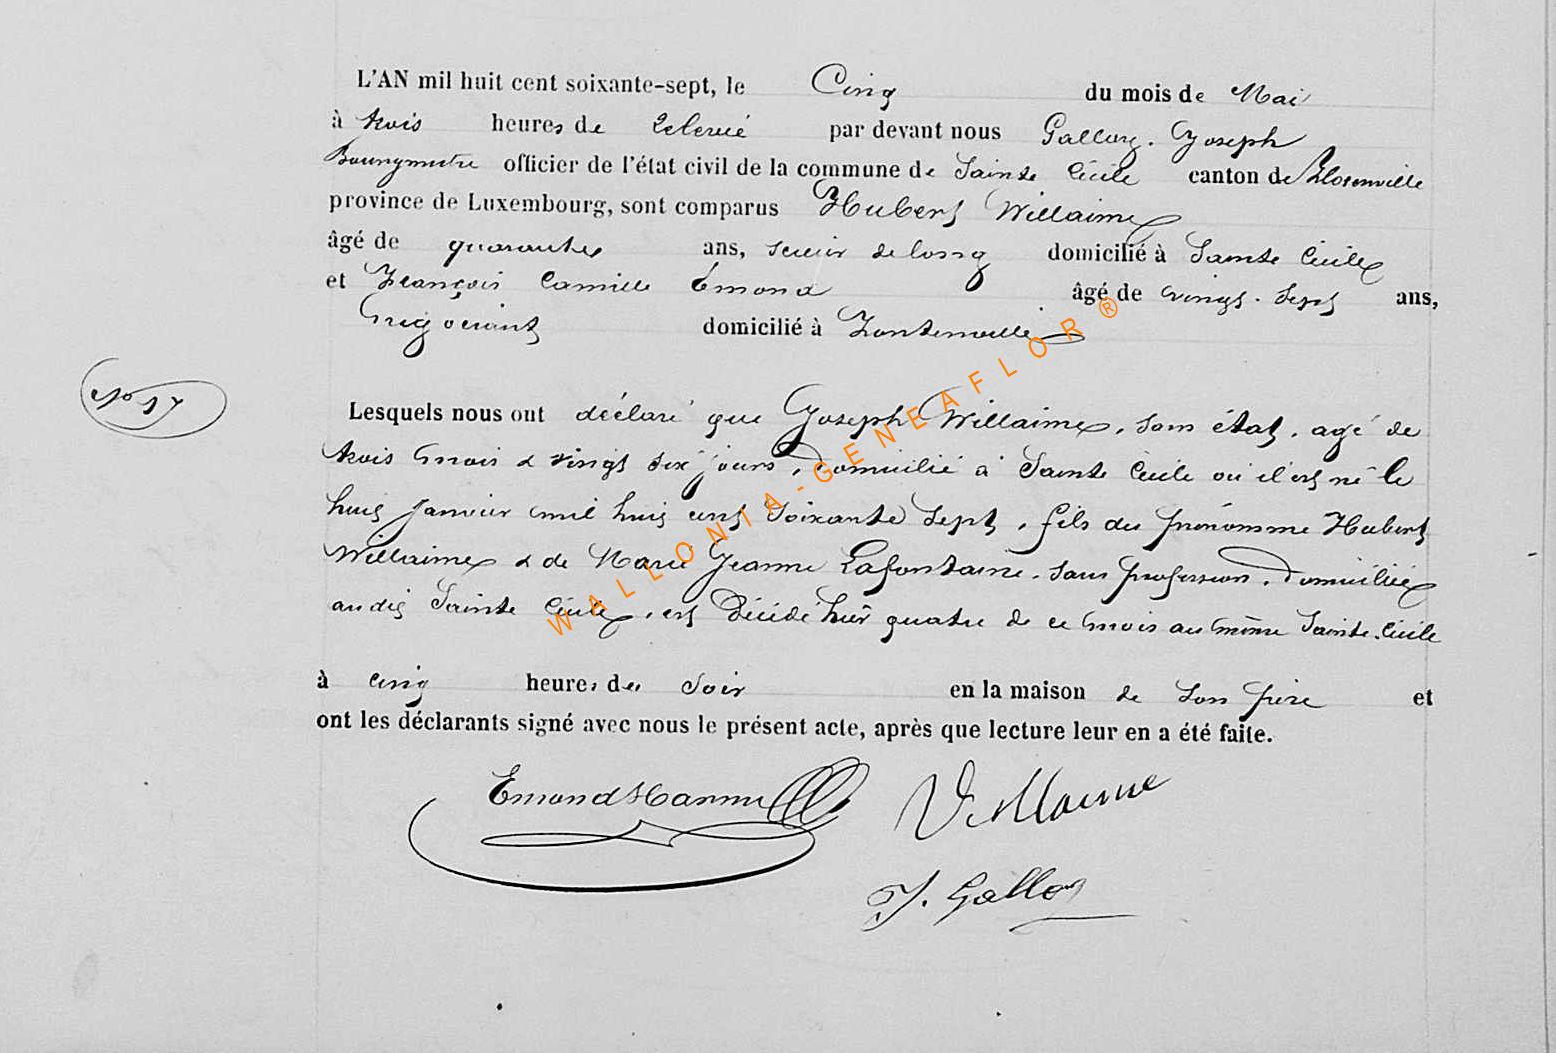 L'AN mil huit cent soixante-sept, le Cinq du mois de Mai
à trois heures de relevée par devant nous Galloy Joseph
Bourgmestre officier de l'état civil de la commune de Sainte Cécile canton de Florenville
province de Luxembourg, sont comparus Hubert Willaime
âgé de quarante ans, scieur de long domicilié à Sainte Cécile
et François Camille Emond âgé de vingt-sept ans,
négociant domicilié à Fontenoille
N° 17
Lesquels nous ont déclaré que Joseph Willaime, sans état, agé de
trois mois & vingt six jours, domicilié à Sainte Cécile où il est né le
huit janvier mil huit cent soixante sept, fils du prénommé Hubert
Willaime & de Marie Jeanne Lafontaine, sans profession, domiciliée
audit Sainte Cécile, est décédé hier quatre de ce mois au même Sainte-Cécile
à cinq heures du soir en la maison de son père et
ont les déclarants signé avec nous le présent acte, après que lecture leur en a été faite.
Emond Willaime
J. Galloy
WALLONIA-GENEAFLOR®